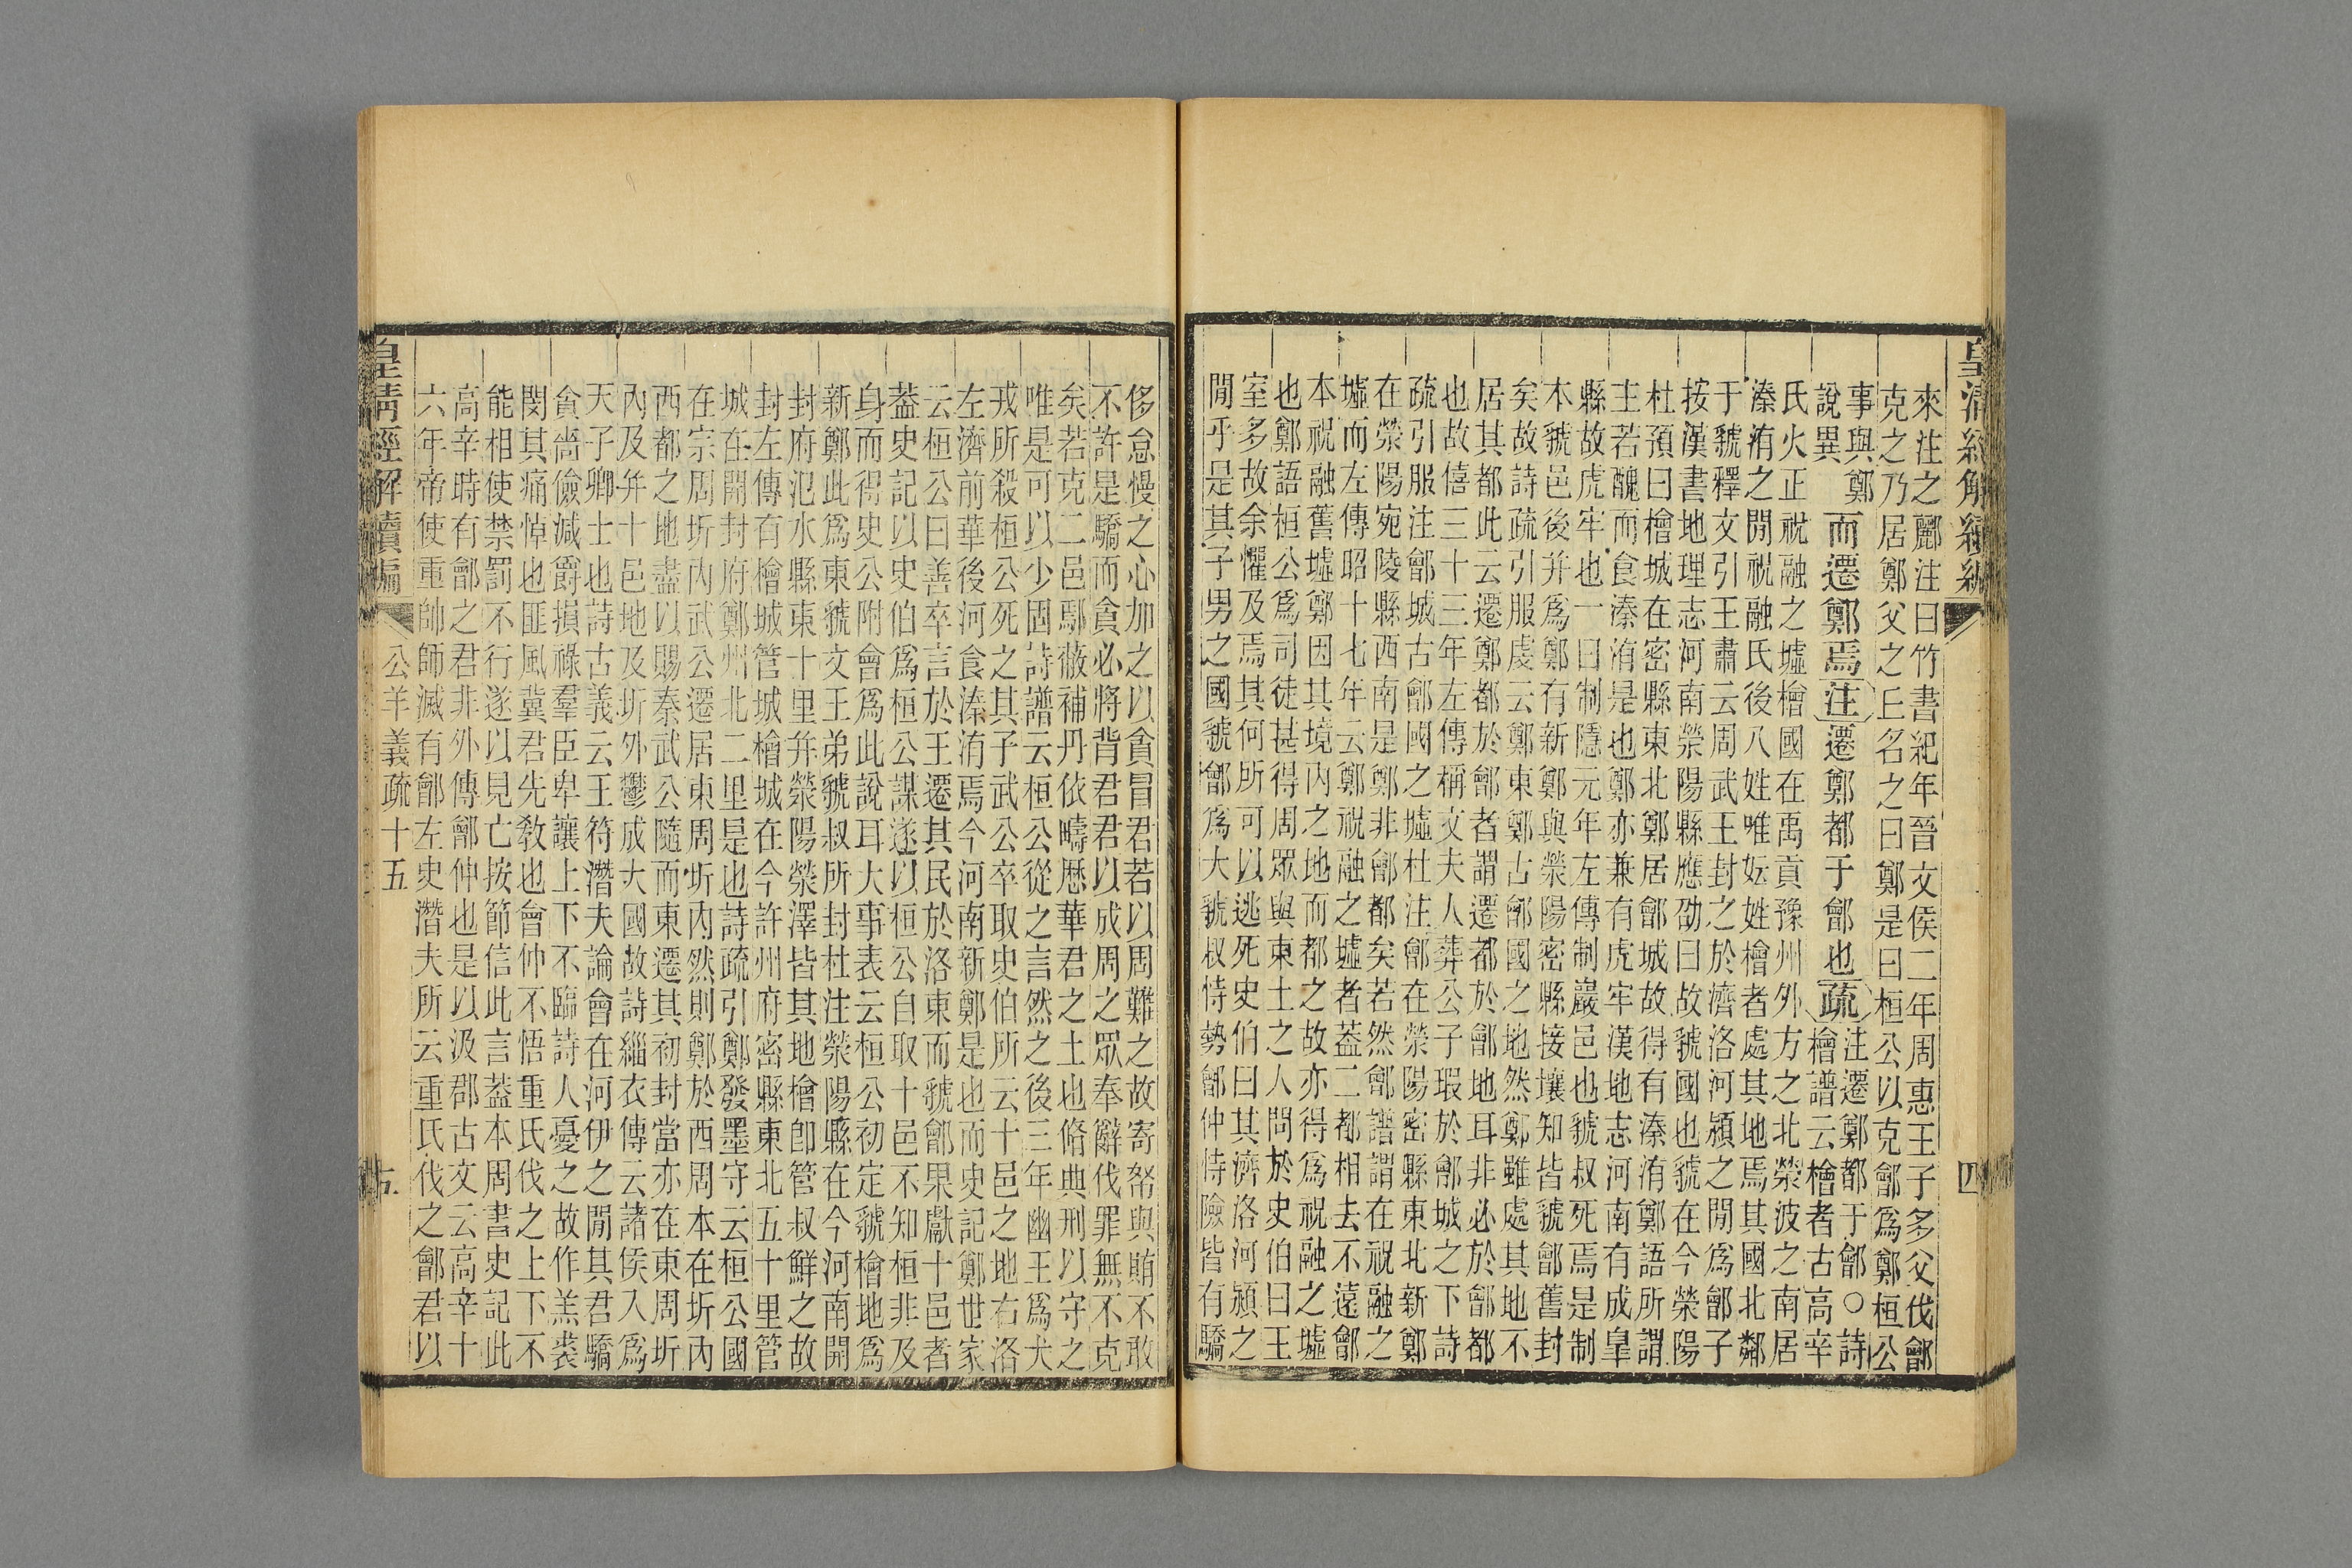 皇清經解續編
四
來注之酈注曰竹書紀年晉文侯二年周惠王子多父伐鄶
克之乃居鄭父之丘名之曰鄭是曰桓公以克鄶爲鄭桓公
事與鄭
說異
而遷鄭焉注遷鄭都于鄶也疏
注遷鄭都于鄶○詩
檜譜云檜者古高辛
氏火正祝融之墟檜國在禹貢豫州外方之北滎波之南居
溱洧之閒祝融氏後八姓唯妘姓檜者處其地焉其國北鄰
于虢釋文引王肅云周武王封之於濟洛河潁之閒爲鄶子
按漢書地理志河南滎陽縣應劭曰故虢國也虢在今滎陽
杜預曰檜城在密縣東北鄭居鄶城故得有溱洧鄭語所謂
主若醜而食溱洧是也鄭亦兼有虎牢漢地志河南有成皐
縣故虎牢也一曰制隱元年左傳制巖邑也虢叔死焉是制
本虢邑後并爲鄭有新鄭與滎陽密縣接壤知皆虢鄶舊封
矣故詩疏引服虔云鄭東鄭古鄶國之地然鄭雖處其地不
居其都此云遷鄭都於鄶者謂遷都於鄶地耳非必於鄶都
也故僖三十三年左傳稱文夫人葬公子瑕於鄶城之下詩
疏引服注鄶城古鄶國之墟杜注鄶在滎陽密縣東北新鄭
在滎陽宛陵縣西南是鄭非鄶都矣若然鄶譜謂在祝融之
墟而左傳昭十七年云鄭祝融之墟者蓋二都相去不遠鄶
本祝融舊墟鄭因其境內之地而都之故亦得爲祝融之墟
也鄭語桓公爲司徒甚得周眾與東土之人問於史伯曰王
室多故余懼及焉其何所可以逃死史伯曰其濟洛河潁之
閒乎是其子男之國虢鄶爲大虢叔恃勢鄶仲恃險皆有驕
侈怠慢之心加之以貪冒君若以周難之故寄帑與賄不敢
不許是驕而貪必將背君君以成周之眾奉辭伐罪無不克
矣若克二邑鄢蔽補丹依疇歷華君之土也脩典刑以守之
唯是可以少固詩譜云桓公從之言然之後三年幽王爲犬
戎所殺桓公死之其子武公卒取史伯所云十邑之地右洛
左濟前華後河食溱洧焉今河南新鄭是也而史記鄭世家
云桓公曰善卒言於王遷其民於洛東而虢鄶果獻十邑者
蓋史記以史伯爲桓公謀遂以桓公自取十邑不知桓非及
身而得史公附會爲此說耳大事表云桓公初定虢檜地爲
新鄭此爲東虢文王弟虢叔所封杜注滎陽縣在今河南開
封府氾水縣東十里并滎陽滎澤皆其地檜卽管叔鮮之故
封左傳有檜城管城檜城在今許州府密縣東北五十里管
城在開封府鄭州北二里是也詩疏引鄭發墨守云桓公國
在宗周圻內武公遷居東周圻內然則鄭於西周本在圻內
西都之地盡以賜秦武公隨而東遷其初封當亦在東周圻
內及并十邑地及圻外鬱成大國故詩緇衣傳云諸侯入爲
天子卿士也詩古義云王符潛夫論會在河伊之閒其君驕
貪嗇儉減爵損祿羣臣卑讓上下不臨詩人憂之故作羔裘
閔其痛悼也匪風冀君先敎也會仲不悟重氏伐之上下不
能相使禁罰不行遂以見亡按節信此言蓋本周書史記此
高辛時有鄶之君非外傳鄶仲也是以汲郡古文云高辛十
六年帝使重帥師滅有鄶左史潛夫所云重氏伐之鄶君以
皇清經解續編
公羊義疏十五
五